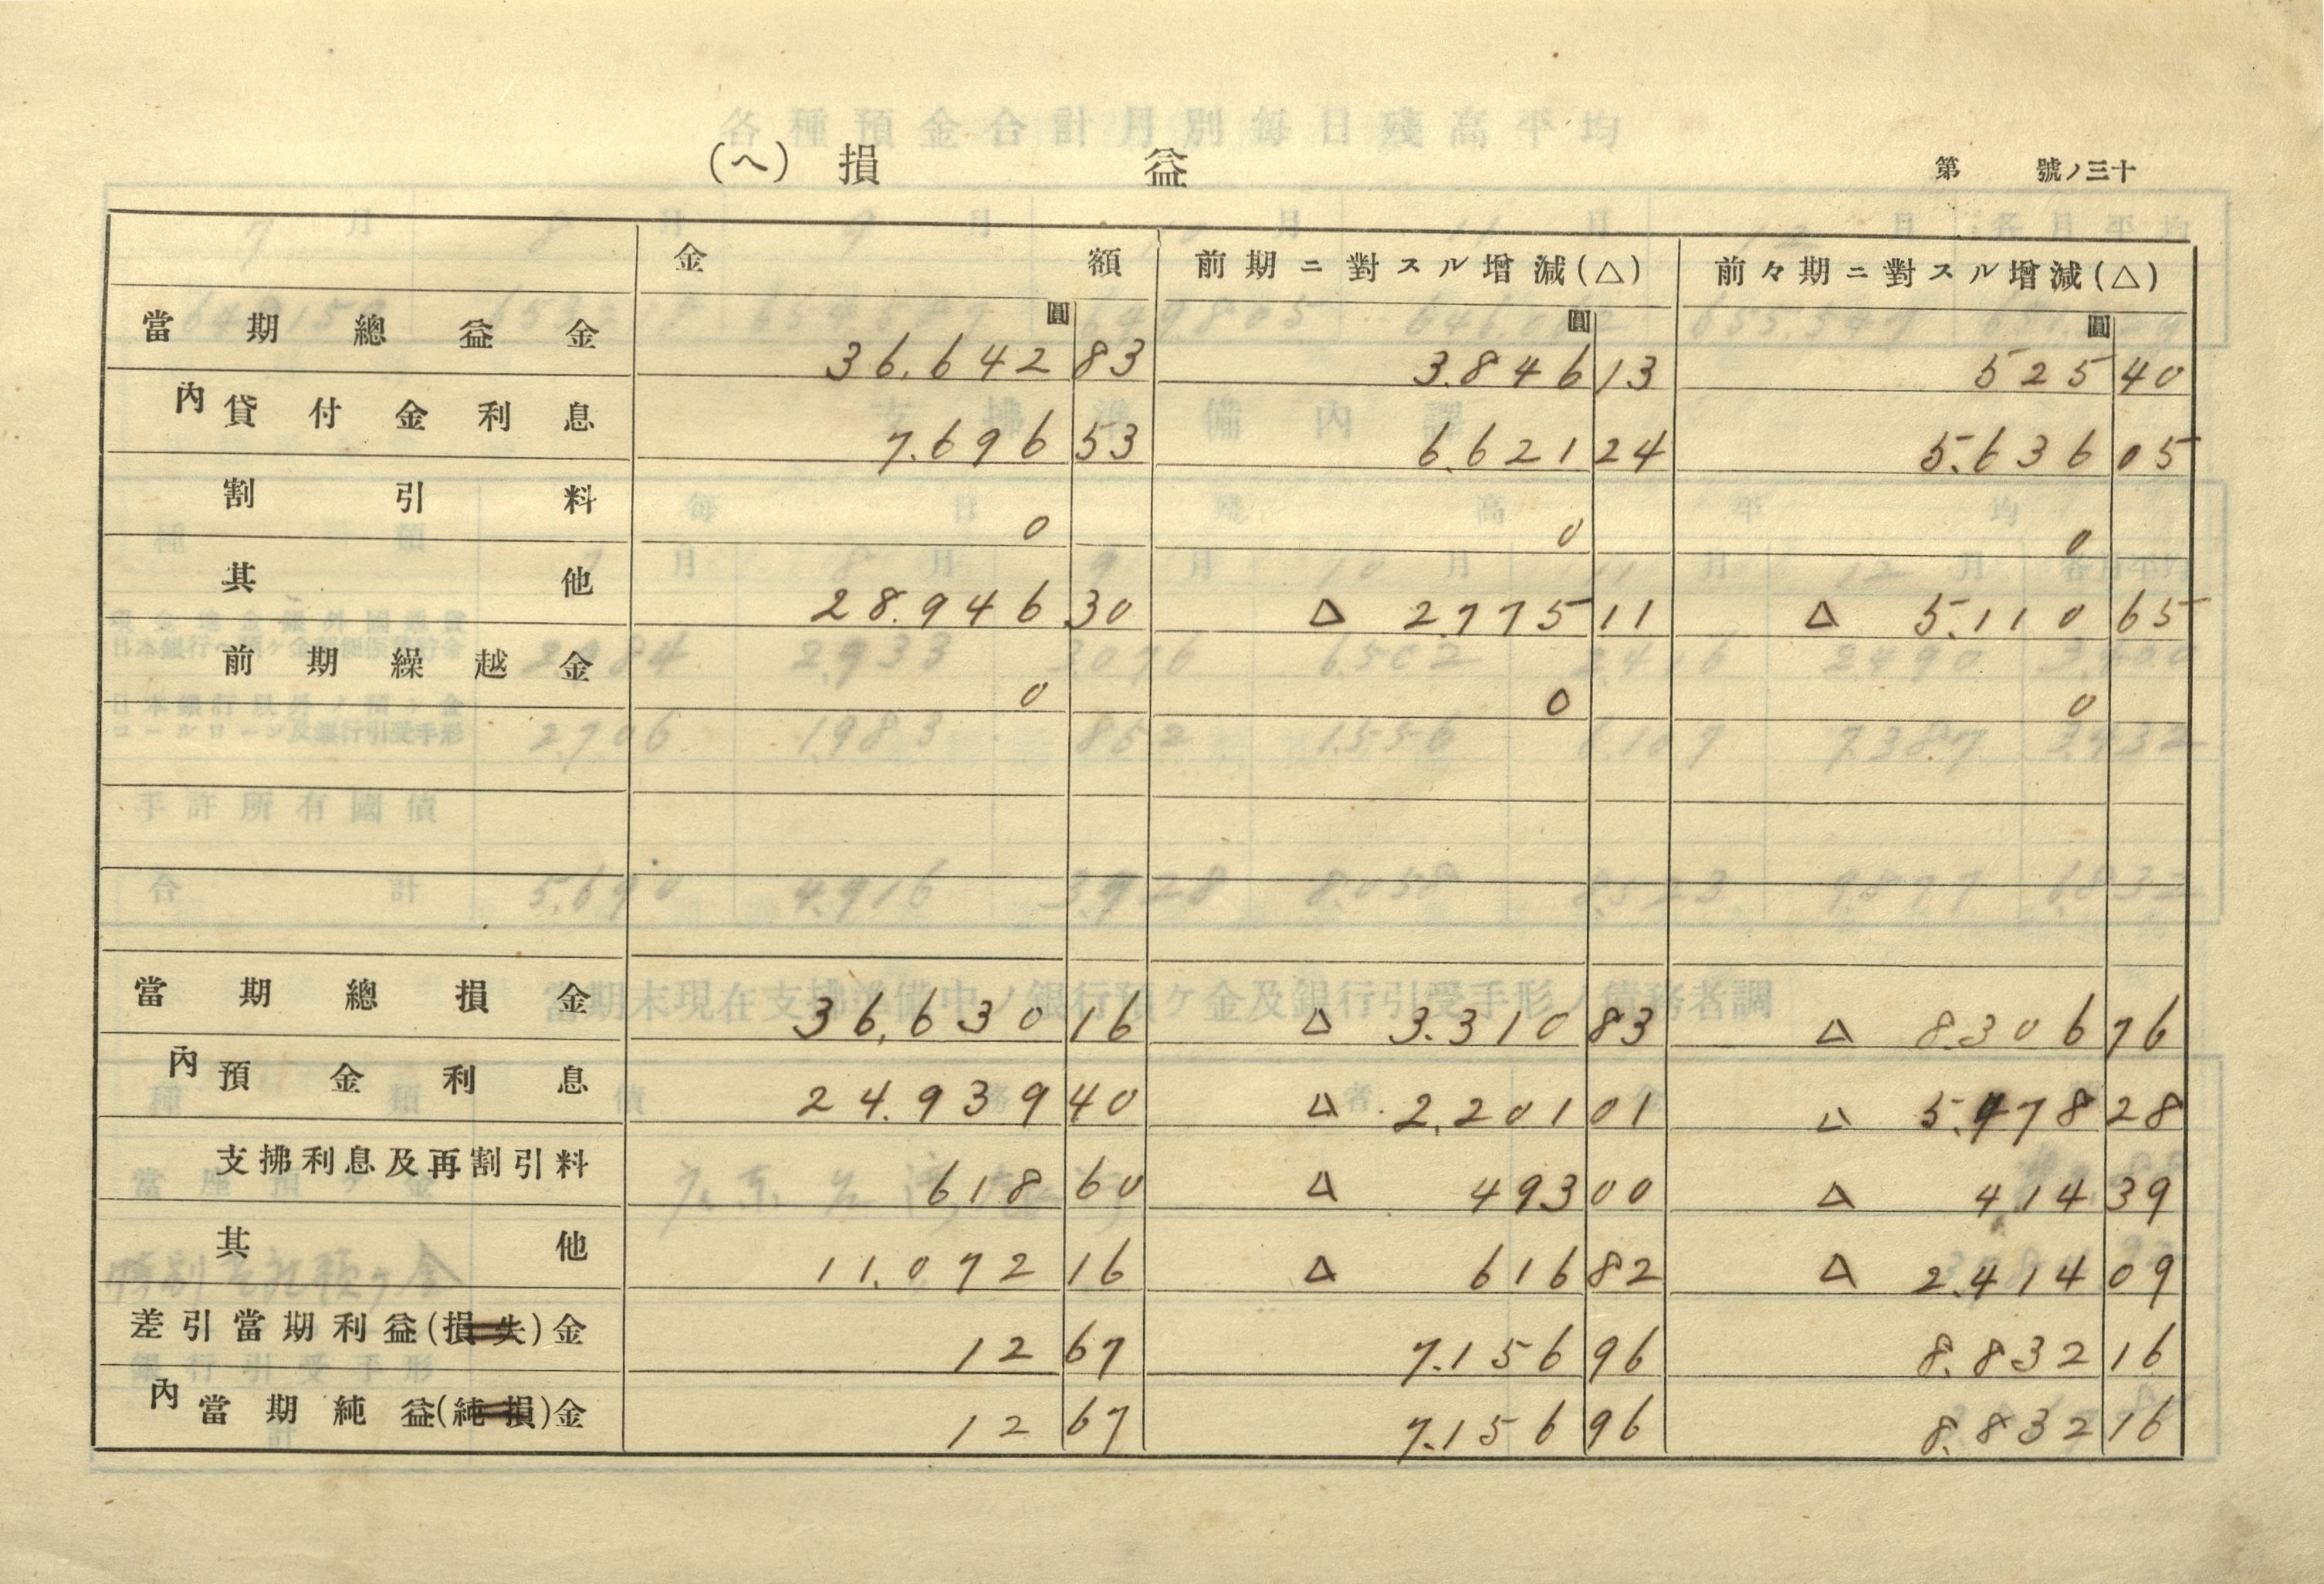 (ヘ) 損益
第 號ノ三十
金額 前期ニ對スル增減(△) 前々期ニ對スル增減(△)
圓 圓 圓
當期總益金 36.642 83 3.846 13 525 40
內貸付金利息 7.696 53 6.621 24 5.636 05
割引料 0 0 0
其他 28.946 30 △ 2.775 11 △ 5.110 65
前期繰越金 0 0 0
當期總損金 36.630 16 △ 3.310 83 △ 8.306 76
內預金利息 24.939 40 △ 2.201 01 △ 5.478 28
支拂利息及再割引料 618 60 △ 493 00 △ 414 39
其他 11.072 16 △ 616 82 △ 2.414 09
差引當期利益(損失)金 12 67 7.156 96 8.832 16
內當期純益(純損)金 12 67 7.156 96 8.832 16